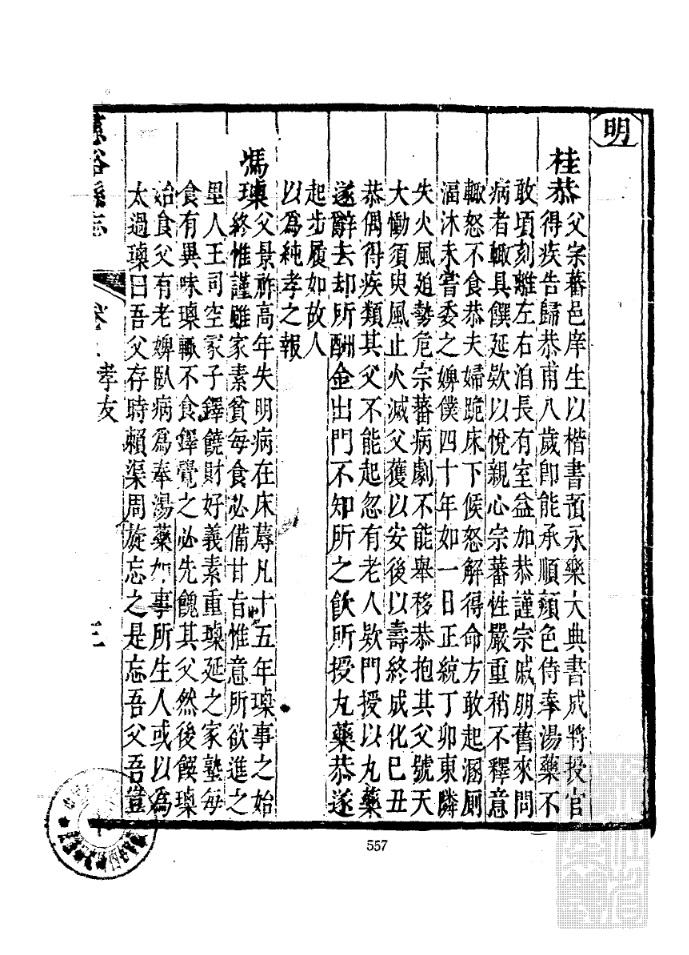 明
桂恭父宗蕃邑庠生以楷書預永樂大典書成將授官
得疾告歸恭甫八歲即能承順顏色侍奉湯藥不
敢頃刻離左右洎長有室益加恭謹宗戚朋舊來問
病者輙具饌延欵以悅親心宗蕃性嚴重稍不釋意
輙怒不食恭夫婦跪床下候怒解得命方敢起溷厠
湢沐未嘗委之婢僕四十年如一日正統丁卯東隣
失火風廹勢危宗蕃病劇不能舉移恭抱其父號天
大慟須臾風止火滅父獲以安後以壽終成化己丑
恭偶得疾類其父不能起忽有老人欵門授以丸藥
遂辭去却所酬金出門不知所之飲所授丸藥恭遂
起步履如故人
以為純孝之報
馮瑧父景祚高年失明病在床蓐凡十五年瑧事之始
終惟謹雖家素貧每食必備甘旨惟意所欲進之
里人王司空冡子鐸饒財好義素重瑧延之家塾每
食有異味瑧輙不食鐸覺之必先餽其父然後饌瑧
始食父有老婢臥病為奉湯藥如事所生人或以為
太過瑧曰吾父存時賴渠周旋忘之是忘吾父吾豈
慈谿縣志
卷
孝友
三
557